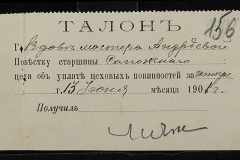 ТАЛОНЪ
156
Г. Вдовѣ мастера Андреевой
Повѣстку старшины Сапожнаго
цеха объ уплатѣ цеховыхъ повинностей за
г. 13 Іюня мѣсяца 190 г.
Получилъ